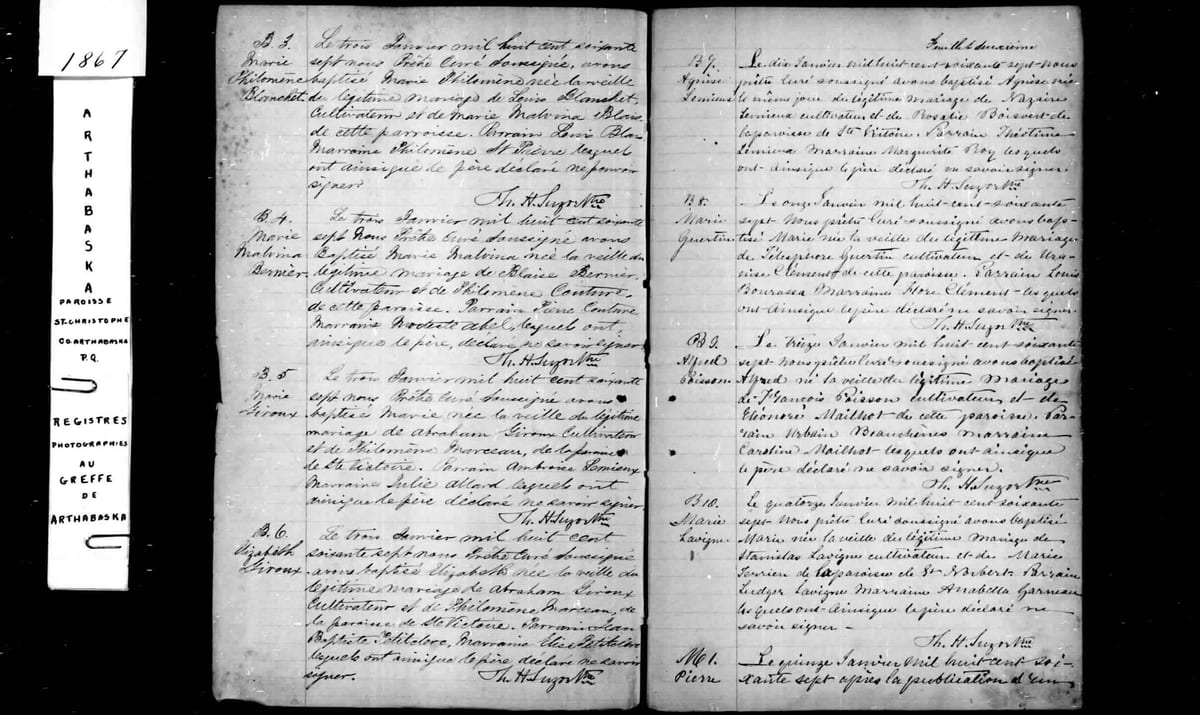 1867
ARTHABASKA
PAROISSE
ST-CHRISTOPHE
CO. ARTHABASKA
P.Q.
REGISTRES
PHOTOGRAPHIES
AU
GREFFE
DE
ARTHABASKA
B. 3.
Marie
Philomène
Blanchet
Le trois Janvier mil huit cent soixante
sept nous Prêtre Curé Soussigné, avons
baptisé Marie Philomène née la veille
du légitime mariage de Louis Blanchet
Cultivateur et de Marie Malvina Blais
de cette parroisse. Parrain Louis Blais
Marraine Philomène St Pierre lesquels
ont ainsi que le père déclaré ne pouvoir
signer.
Th. H. Suzor Ptre
B. 4.
Marie
Malvina
Bernier
Le trois Janvier mil huit cent soixante
sept Nous Prêtre Curé Soussigné avons
Baptisé Marie Malvina née la veille du
légitime mariage de Blaise Bernier
Cultivateur et de Philomène Couture,
de cette paroisse. Parrain Pierre Couture
Marraine Modeste Abel, lesquels ont,
ainsi que le père, déclaré ne savoir signer
Th. H. Suzor Ptre
B. 5
Marie
Giroux
Le trois Janvier mil huit cent soixante
sept nous Prêtre Curé Soussigné avons
baptisé Marie née la veille du légitime
mariage de Abraham Giroux Cultivateur
et de Philomène Marceau, de la paroisse
de Ste Victoire. Parrain Ambroise Lemieux
Marraine Julie Allard lesquels ont
ainsi que le père déclaré ne savoir signer
Th. H. Suzor Ptre
B. 6.
Elizabeth
Giroux
Le trois Janvier mil huit cent
soixante sept nous Prêtre Curé Soussigné
avons baptisé Elizabeth née la veille du
légitime mariage de Abraham Giroux
Cultivateur et de Philomène Marceau, de
la paroisse de Ste Victoire. Parrain Jean
Baptiste Petitclerc, Marraine Elise Petitclerc
lesquels ont ainsi que le père, déclaré ne savoir
signer.
Th. H. Suzor Ptre
Feuillet deuxième
B 7.
Agnèse
Lemieux
Le dix Janvier mil huit cent soixante sept nous
prêtre Curé soussigné avons baptisé Agnèse née
le même jour du légitime mariage de Nazaire
Lemieux cultivateur et de Rosalie Boisvert de
la paroisse de Ste Victoire. Parrain Théotime
Lemieux Marraine Marguerite Roy lesquels
ont ainsi que le père déclaré ne savoir signer
Th. H. Suzor Ptre
B 8.
Marie
Guertin
Le onze Janvier mil huit-cent-soixante
sept Nous prêtre Curé-soussigné avons bap-
tisé Marie née la veille du légitime mariage
de Télesphore Guertin cultivateur et de Ura-
nise Clément de cette paroisse. Parrain Louis
Bourassa Marraine Flore Clément lesquels
ont Ainsi que le père déclaré ne savoir signer
Th. H. Suzor Ptre
B 9.
Alfred
Poisson
Le treize Janvier mil huit cent soixante
sept nous prêtre Curé soussigné avons baptisé
Alfred né la veille du légitime mariage
de François Poisson cultivateur et de
Eléonore Mailhot de cette paroisse. Par-
rain Urbain Beauchènes marraine
Caroline Mailhot lesquels ont ainsi que
le père déclaré ne savoir signer.
Th. H. Suzor Ptre
B 10.
Marie
Lavigne
Le quatorze Janvier mil huit cent soixante
sept Nous prêtre Curé soussigné avons baptisé
Marie née la veille du légitime mariage de
Stanislas Lavigne cultivateur et de Marie
Terrien de la paroisse de St Norbert. Parrain
Ludger Lavigne Marraine Anabella Garneau
lesquels ont-Ainsi que le père déclaré ne
savoir signer -
Th. H. Suzor Ptre
M 1.
Pierre
Le quinze Janvier mil huit cent soi-
xante sept après la publication d'un